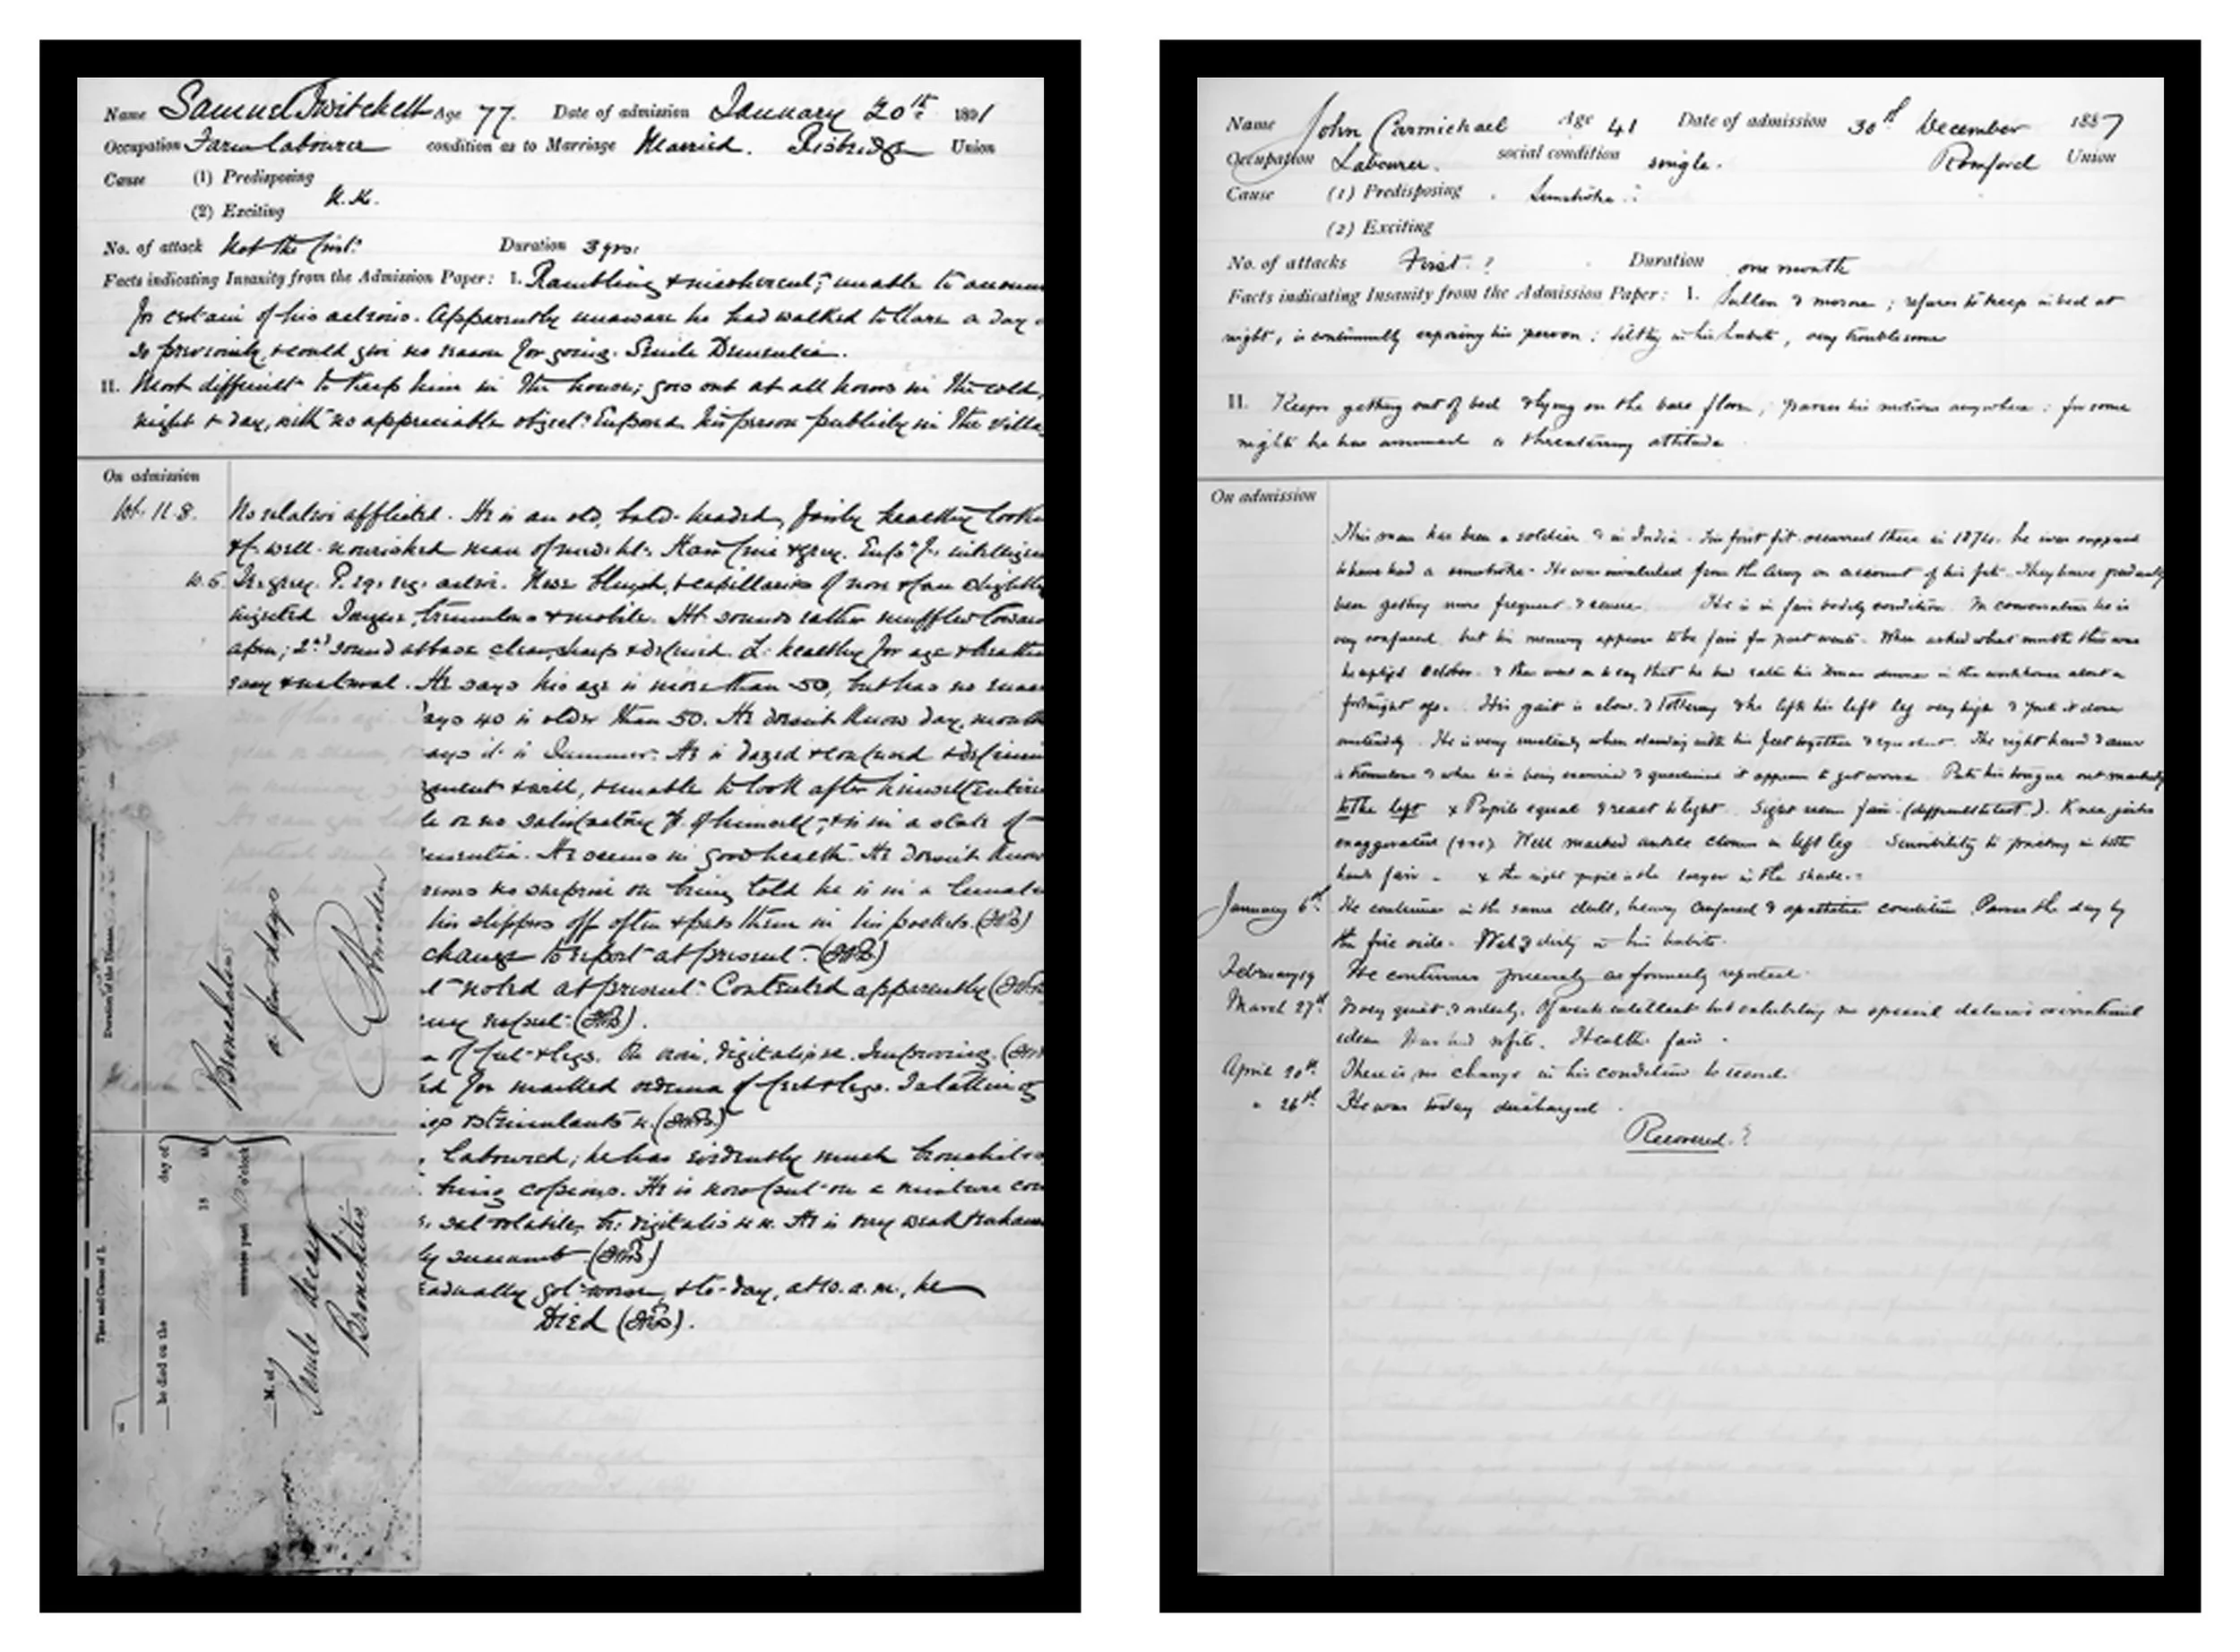 Name Samuel Twitchett Age 77. Date of admission January 20th 1891
Occupation Farm labourer condition as to Marriage Married. Risbridge Union
Cause (1) Predisposing
N.K.
(2) Exciting
No. of attack Not the first. Duration 3 yrs.
Facts indicating Insanity from the Admission Paper: I. Rambling & incoherent; unable to
for certain of his actions. Apparently unaware he had walked to Clare a day
so previously, & could give no reason for going. Senile Dementia.
II. Most difficult to keep him in the house; goes out at all hours in the cold,
night & day, with no appreciable object. Exposed his person publicly in the
On admission
Wt. 11.8. No relation afflicted. He is an old, bald-headed, fairly healthy
& f. well-nourished man of med. ht. Hair fine & grey.
Irs. grey. P. eq. reg. active. Nose bluish, & capillaries of nose & face slightly
injected. Tongue, tremulous & mobile. Ht. sounds rather muffled
apex; 2nd sound at base clear, sharp & defined. L. healthy for age &
easy & natural. He says his age is more than 50, but has no
says 40 is older than 50. He doesn't know day, month
says it is Summer. He is dazed & confused &
& will, & unable to look after himself
or no satisfactory of himself, & is in a state of
He seems in good health. He doesn't know
no surprise on being told he is in a
his slippers off often & puts them in his pockets.
change to report at present.
noted at present. Contented apparently
of feet & legs. On iron, digitalis &c. Improving.
for marked oedema of feet & legs. Is
stimulants &c.
Laboured; he has evidently much bronchitis,
being copious. He is now put on a mixture
sal volatile, tr. digitalis &c. He is very weak &
succumb
gradually got worse, & to-day, at 10. a.m., he
Died
Duration of the Disease.
Bronchitis
a few days
Time and Cause of
he died on the day of
18
minutes past o'clock
M. of
Senile decay
Bronchitis
Name John Carmichael Age 41 Date of admission 30th December 1887
Occupation Labourer. social condition single. Romford Union
Cause (1) Predisposing Sunstroke
(2) Exciting
No. of attacks First ? Duration one month
Facts indicating Insanity from the Admission Paper: I. Sullen & morose; refuses to keep in bed at
night, is continually exposing his person: filthy in his habits, very troublesome
II. Keeps getting out of bed & lying on the bare floor; passes his motions anywhere: for some
nights he has assumed a threatening attitude
On admission
This man has been a soldier & in India. His first fit occurred there in 1874. he was supposed
to have had a sunstroke. He was invalided from the Army on account of his fits. They have gradually
been getting more frequent & severe. He is in fair bodily condition. In conversation he is
very confused but his memory appears to be fair for past events. When asked what month this was
he replied October & then went on to say that he had eaten his Xmas dinner in the workhouse about a
fortnight ago. His gait is slow & tottering & he lifts his left leg very high & puts it down
unsteadily. He is very unsteady when standing with his feet together & eyes shut. The right hand & arm
is tremulous & when he is being examined & questioned it appears to get worse. Puts his tongue out markedly
to the left x Pupils equal & react to light. Sight seems fair (difficult to test). Knee jerks
exaggerated Well marked ankle clonus in left leg Sensibility to pricking in both
hands fair. x the right pupil is the larger in the shade.
January 6th He continues in the same dull, heavy confused & apathetic condition. Passes the day by
the fire side. Wet & dirty in his habits.
February 19 He continues precisely as formerly reported.
March 27th Is very quiet & orderly. Of weak intellect but exhibiting no special delusions or irrational
ideas. Has had no fits. Health fair.
April 20th There is no change in his condition to record.
" 26th He was today discharged
Recovered.?